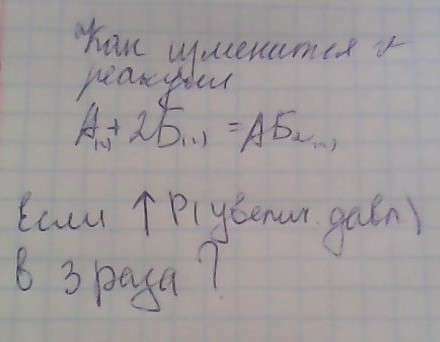 Как изменится v
реакции
А(г)+ 2Б(г) = АБ₂(г)
Если ↑ P(увелич. давл)
в 3 раза ?